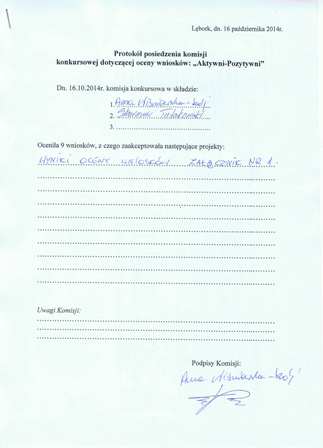 Lębork, dn. 16 października 2014r.
Protokół posiedzenia komisji
konkursowej dotyczącej oceny wniosków: „Aktywni-Pozytywni"
Dn. 16.10.2014r. komisja konkursowa w składzie:
1. Anna
2. Sławomir
3.
Oceniła 9 wniosków, z czego zaakceptowała następujące projekty:
WYNIKI OCENY WNIOSKÓW ZAŁĄCZNIK NR 1.
Uwagi Komisji:
Podpisy Komisji:
Anna